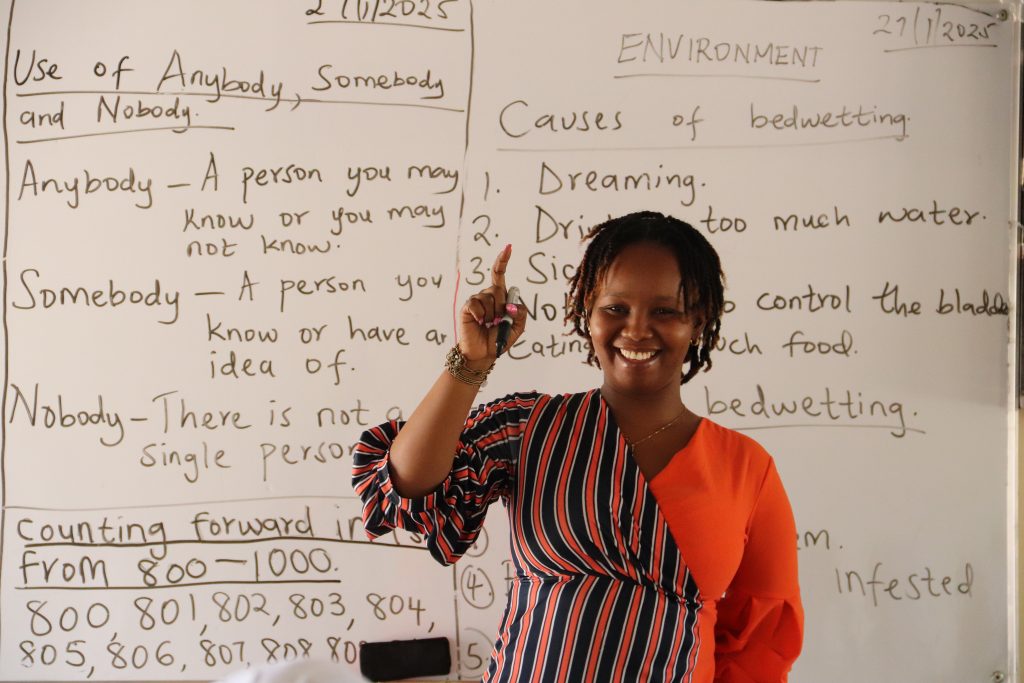 27/1/2025
Use of Anybody, Somebody
and Nobody.
Anybody - A person you may
know or you may
not know.
Somebody - A person you
know or have an
idea of.
Nobody - There is not a
single person
Counting forward in
from 800-1000.
800, 801, 802, 803, 804,
805, 806, 807, 808
27/1/2025
ENVIRONMENT
Causes of bedwetting.
1. Dreaming.
2. too much water.
3.
control the bladder
Eating food.
bedwetting.
4.
infested
5.